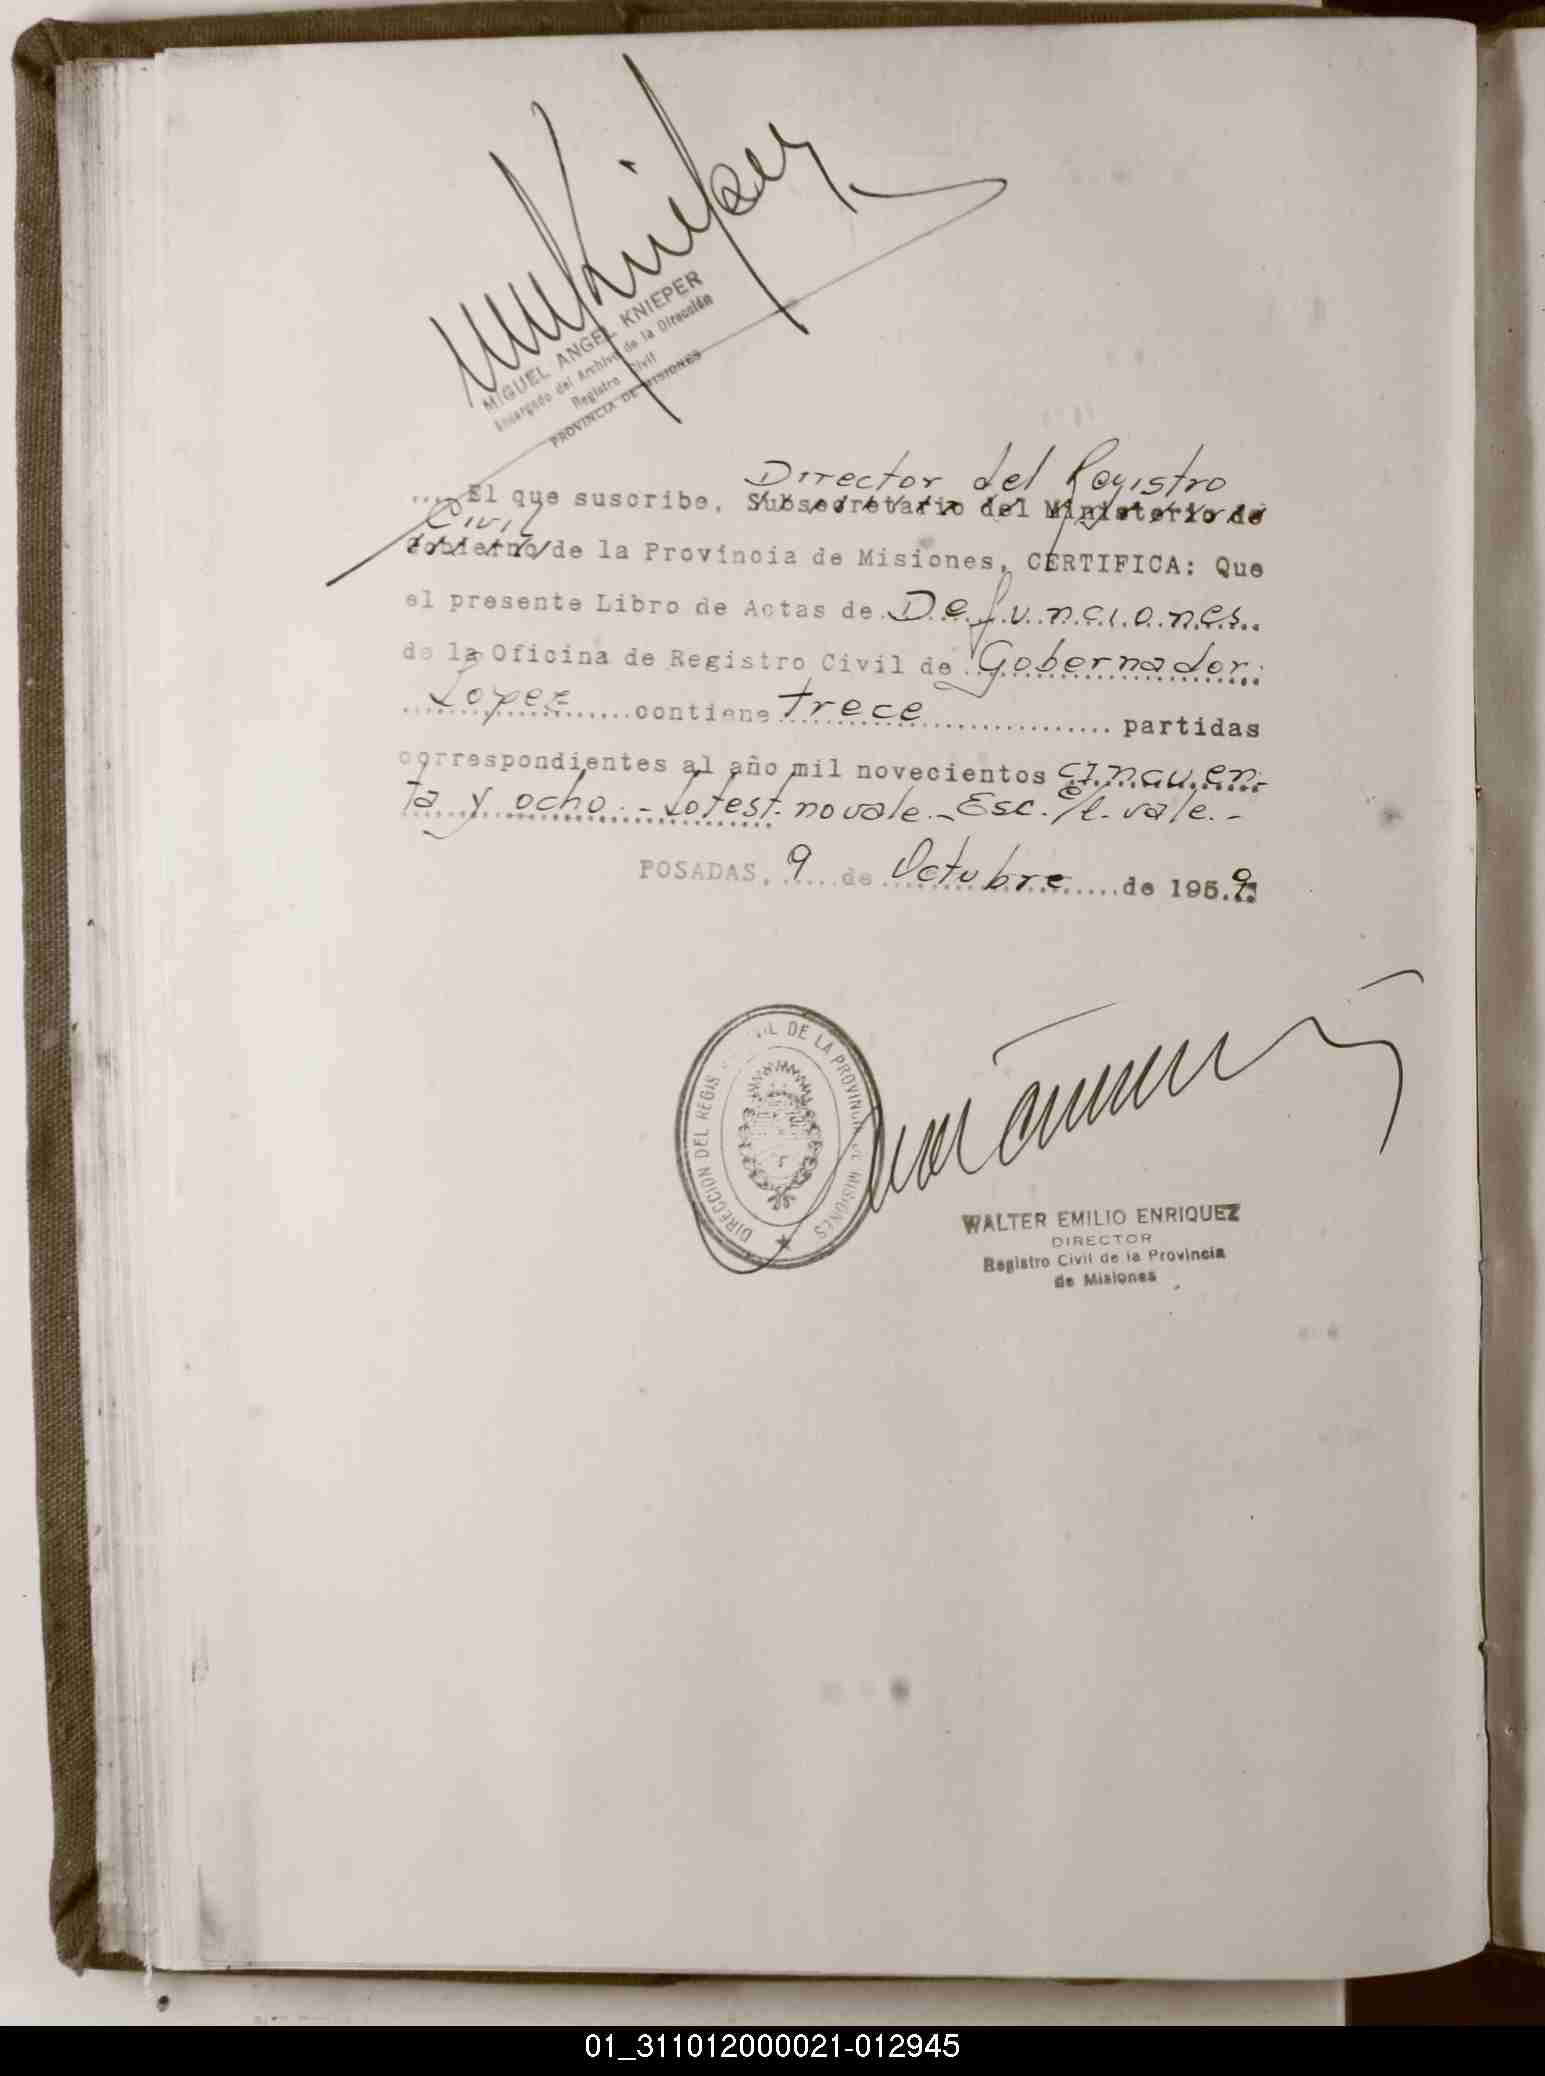 MIGUEL ANGEL KNIEPER
Encargado del Archivo de la Dirección
Registro Civil
PROVINCIA DE MISIONES
Director del Registro
.... El que suscribe, Subsecretario del Ministerio de
Civil
Gobierno de la Provincia de Misiones, CERTIFICA: Que
el presente Libro de Actas de Defunciones
de la Oficina de Registro Civil de Gobernador
Lopez contiene trece partidas
correspondientes al año mil novecientos cincuen-
ta y ocho.- Lotest. no vale.- Esc. e/l. vale.-
POSADAS, 9 de Octubre de 1959.
DIRECCION DEL REGIS IL DE LA PROVINCIA DE MISIONES
WALTER EMILIO ENRIQUEZ
DIRECTOR
Registro Civil de la Provincia
de Misiones
01_311012000021-012945